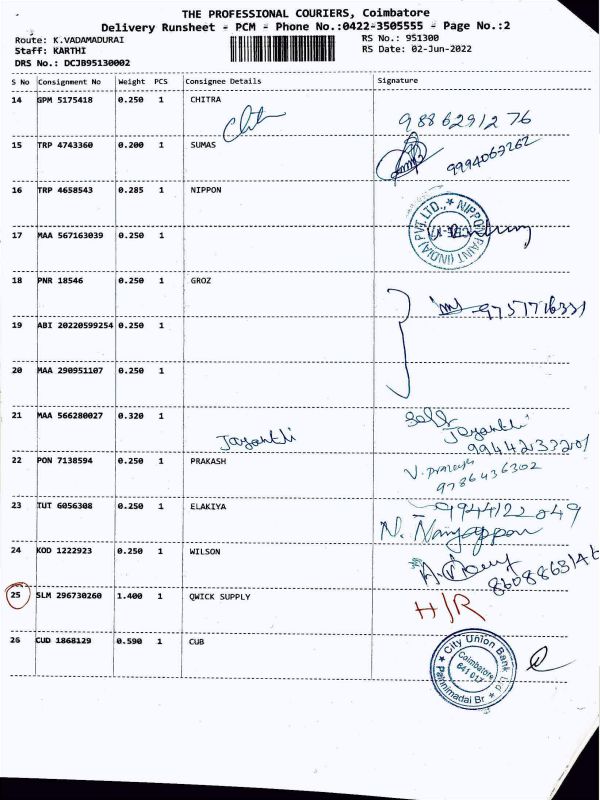 THE PROFESSIONAL COURIERS, Coimbatore
Delivery Runsheet - PCM - Phone No.:0422-3505555 - Page No.:2
Route: K.VADAMADURAI RS No.: 951300
Staff: KARTHI RS Date: 02-Jun-2022
DRS No.: DCJB95130002
S No Consignment No Weight PCS Consignee Details Signature
14 GPM 5175418 0.250 1 CHITRA
9886291276
15 TRP 4743360 0.200 1 SUMAS
9994063262
16 TRP 4658543 0.285 1 NIPPON
NIPPON PAINT (INDIA) PVT. LTD.,
17 MAA 567163039 0.250 1
18 PNR 18546 0.250 1 GROZ
19 ABI 20220599254 0.250 1
20 MAA 290951107 0.250 1
21 MAA 566280027 0.320 1
Jayanthi Self
Jayanthi
22 PON 7138594 0.250 1 PRAKASH
9786436302
23 TUT 6056308 0.250 1 ELAKIYA
24 KOD 1222923 0.250 1 WILSON
25 SLM 296730260 1.400 1 QWICK SUPPLY H/R
26 CUD 1868129 0.590 1 CUB
City Union Bank Ltd
Coimbatore
641 017